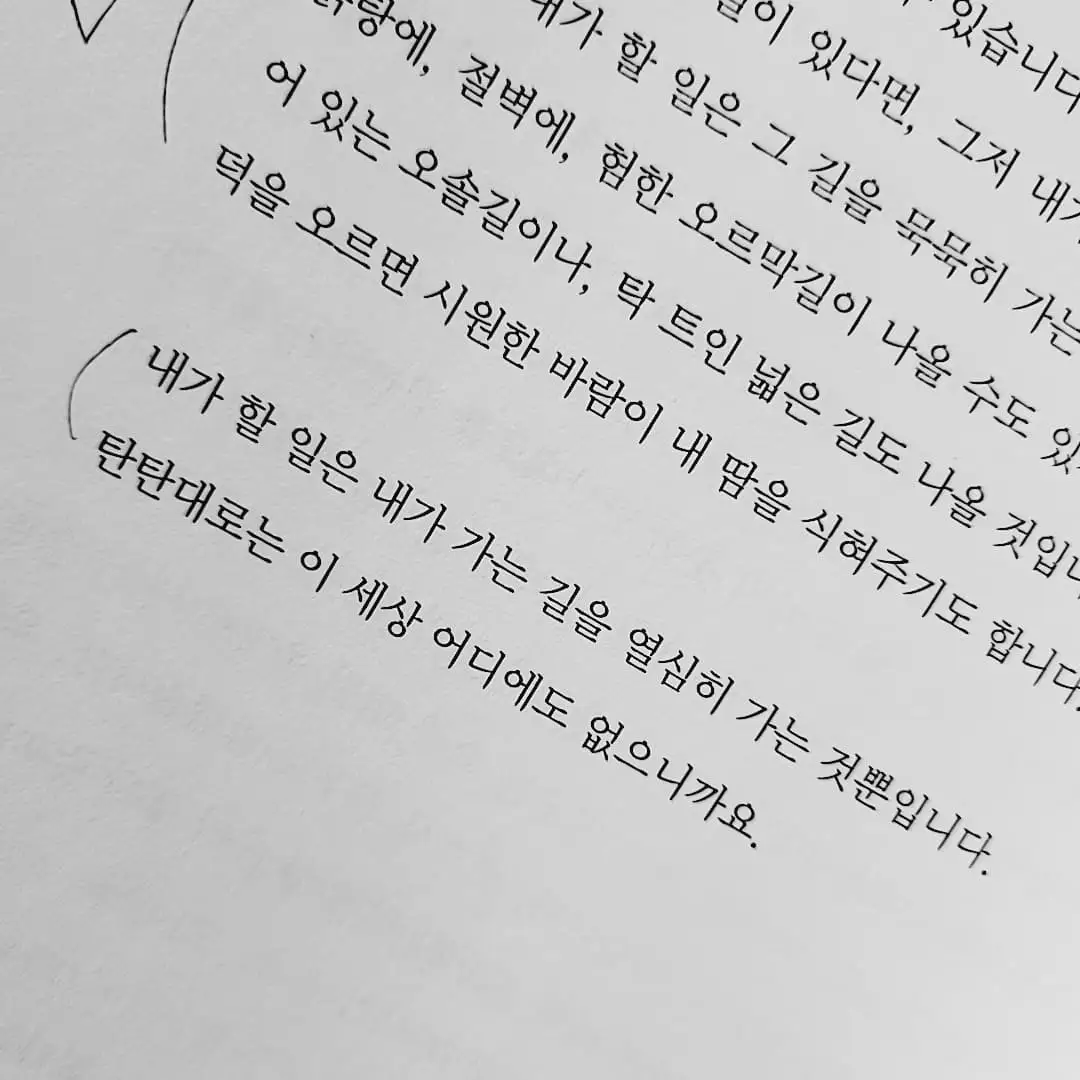 있습니다
있다면, 그저 내가
내가 할 일은 그 길을 묵묵히 가는
절벽에, 험한 오르막길이 나올 수도
어 있는 오솔길이나, 탁 트인 넓은 길도 나올 것입니
덕을 오르면 시원한 바람이 내 땀을 식혀주기도 합니다.
내가 할 일은 내가 가는 길을 열심히 가는 것뿐입니다.
탄탄대로는 이 세상 어디에도 없으니까요.